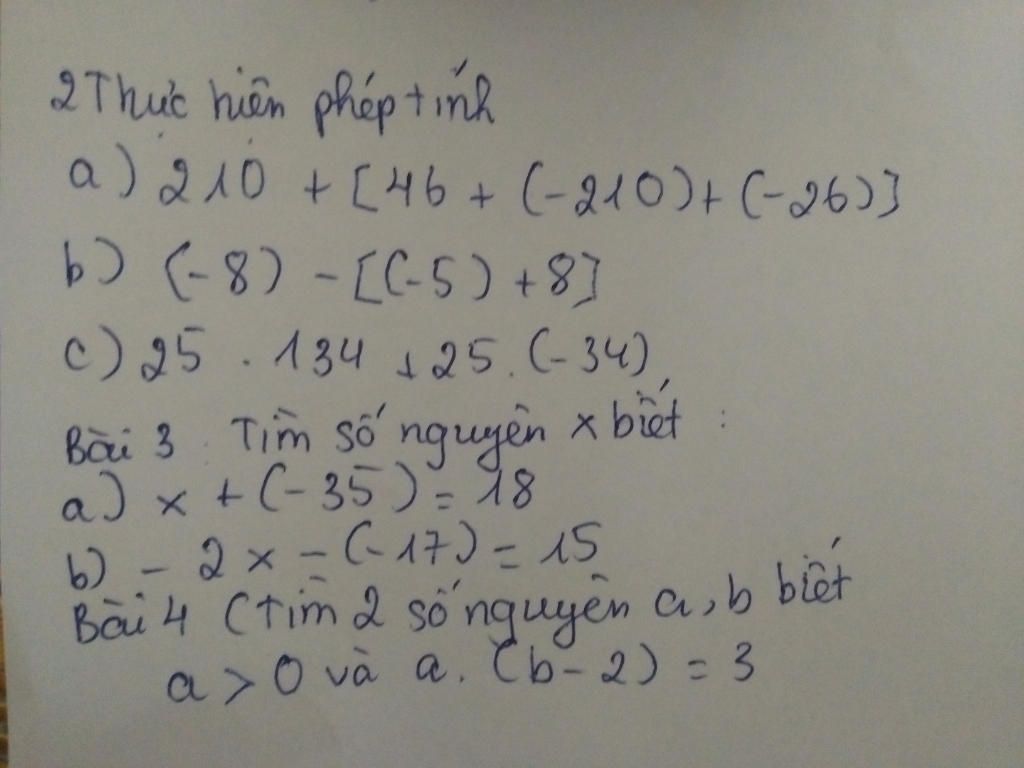 2 Thực hiện phép tính
a) 210 + [46 + (-210) + (-26)]
b) (-8) - [(-5) + 8]
c) 25 . 134 + 25 . (-34)
Bài 3 . Tìm số nguyên x biết :
a) x + (-35) = 18
b) - 2x - (-17) = 15
Bài 4 (Tìm 2 số nguyên a, b biết
a > 0 và a . (b - 2) = 3